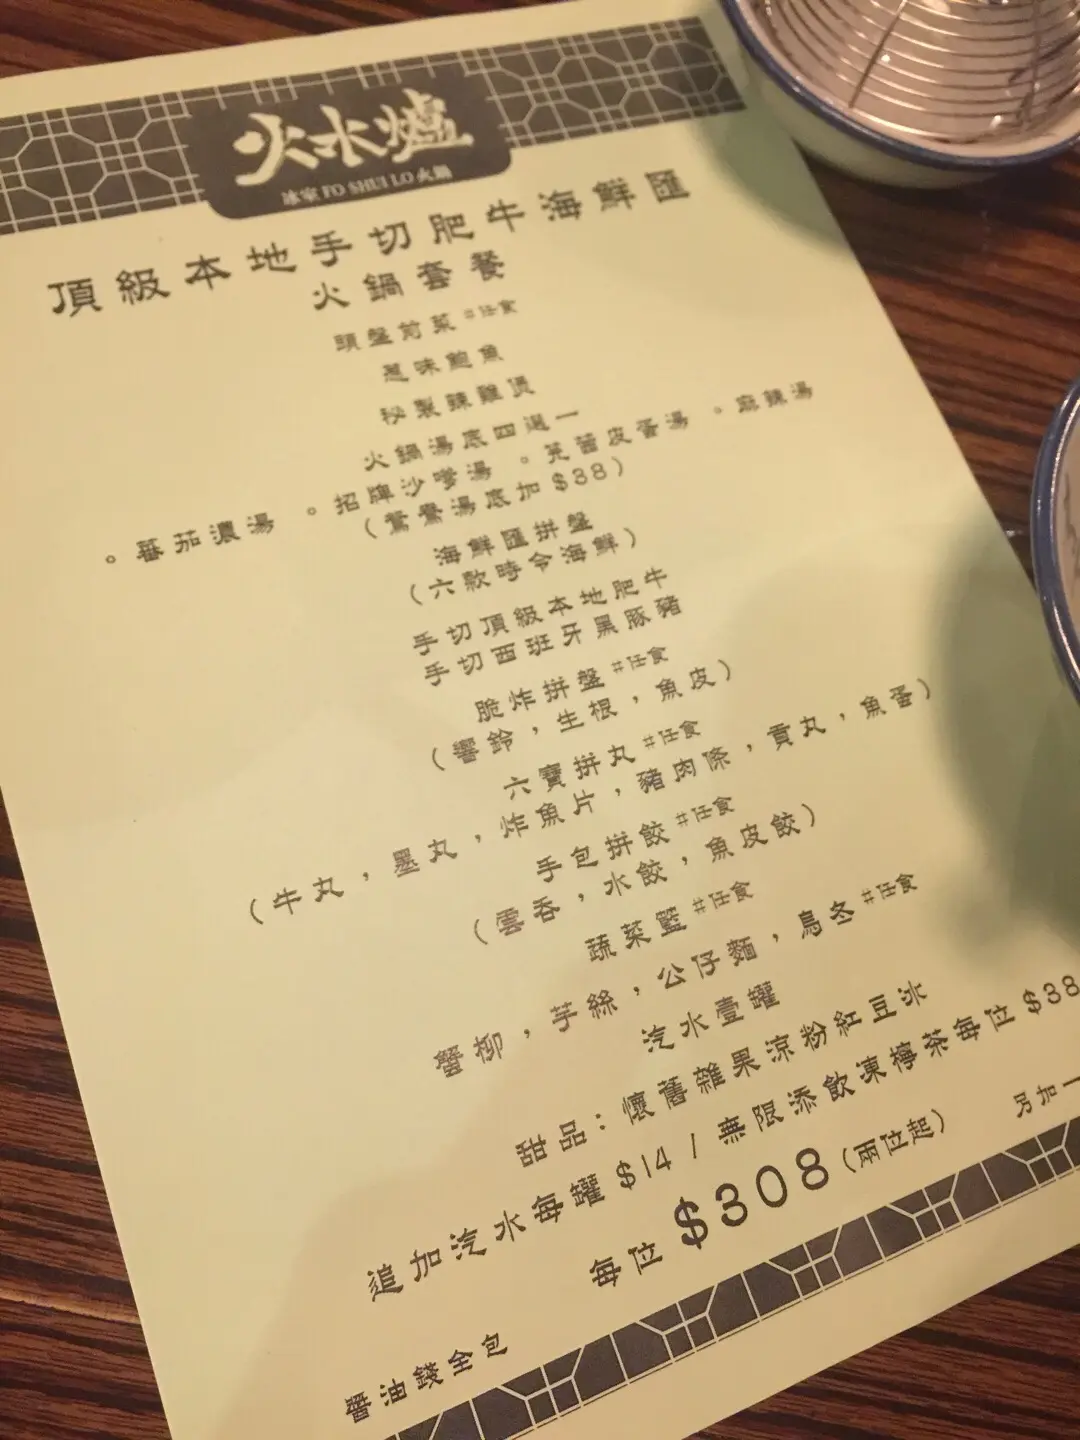 火水爐
冰室 FO SHUI LO 火鍋
頂級本地手切肥牛海鮮匯
火鍋套餐
頭盤前菜 #任食
蔥味鮑魚
秘製辣雞煲
火鍋湯底四選一
。蕃茄濃湯 。招牌沙嗲湯 。芫茜皮蛋湯 。麻辣湯
(鴛鴦湯底加 $38)
海鮮匯拼盤
(六款時令海鮮)
手切頂級本地肥牛
手切西班牙黑豚豬
脆炸拼盤 #任食
(響鈴，生根，魚皮)
六寶拼丸 #任食
(牛丸，墨丸，炸魚片，豬肉條，貢丸，魚蛋)
手包拼餃 #任食
(雲吞，水餃，魚皮餃)
蔬菜籃 #任食
蟹柳，芋絲，公仔麵，烏冬 #任食
汽水壹罐
甜品：懷舊雜果涼粉紅豆冰
追加汽水每罐 $14 / 無限添飲凍檸茶每位 $38
每位 $308 (兩位起)
另加一
醬油錢全包